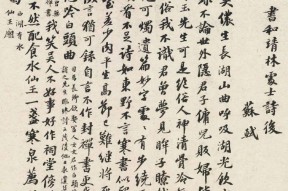 書和靖林處士詩後
蘇軾
吳儂生長湖山曲呼吸湖光飲
不論世外隱君子傭兒販婦
先生可是絕俗人神清骨冷
俗我不識君曾夢見眸子瞭
可燭遺篇妙字處有步繞
詩如東野不言寒書似
少肉平生高節已難繼將死
猶可錄自言不作封禪書更
白頭曲
我笑吳人不好事好作祠堂傍
不然配食水仙王一盞寒泉薦
湖上有水
仙王廟